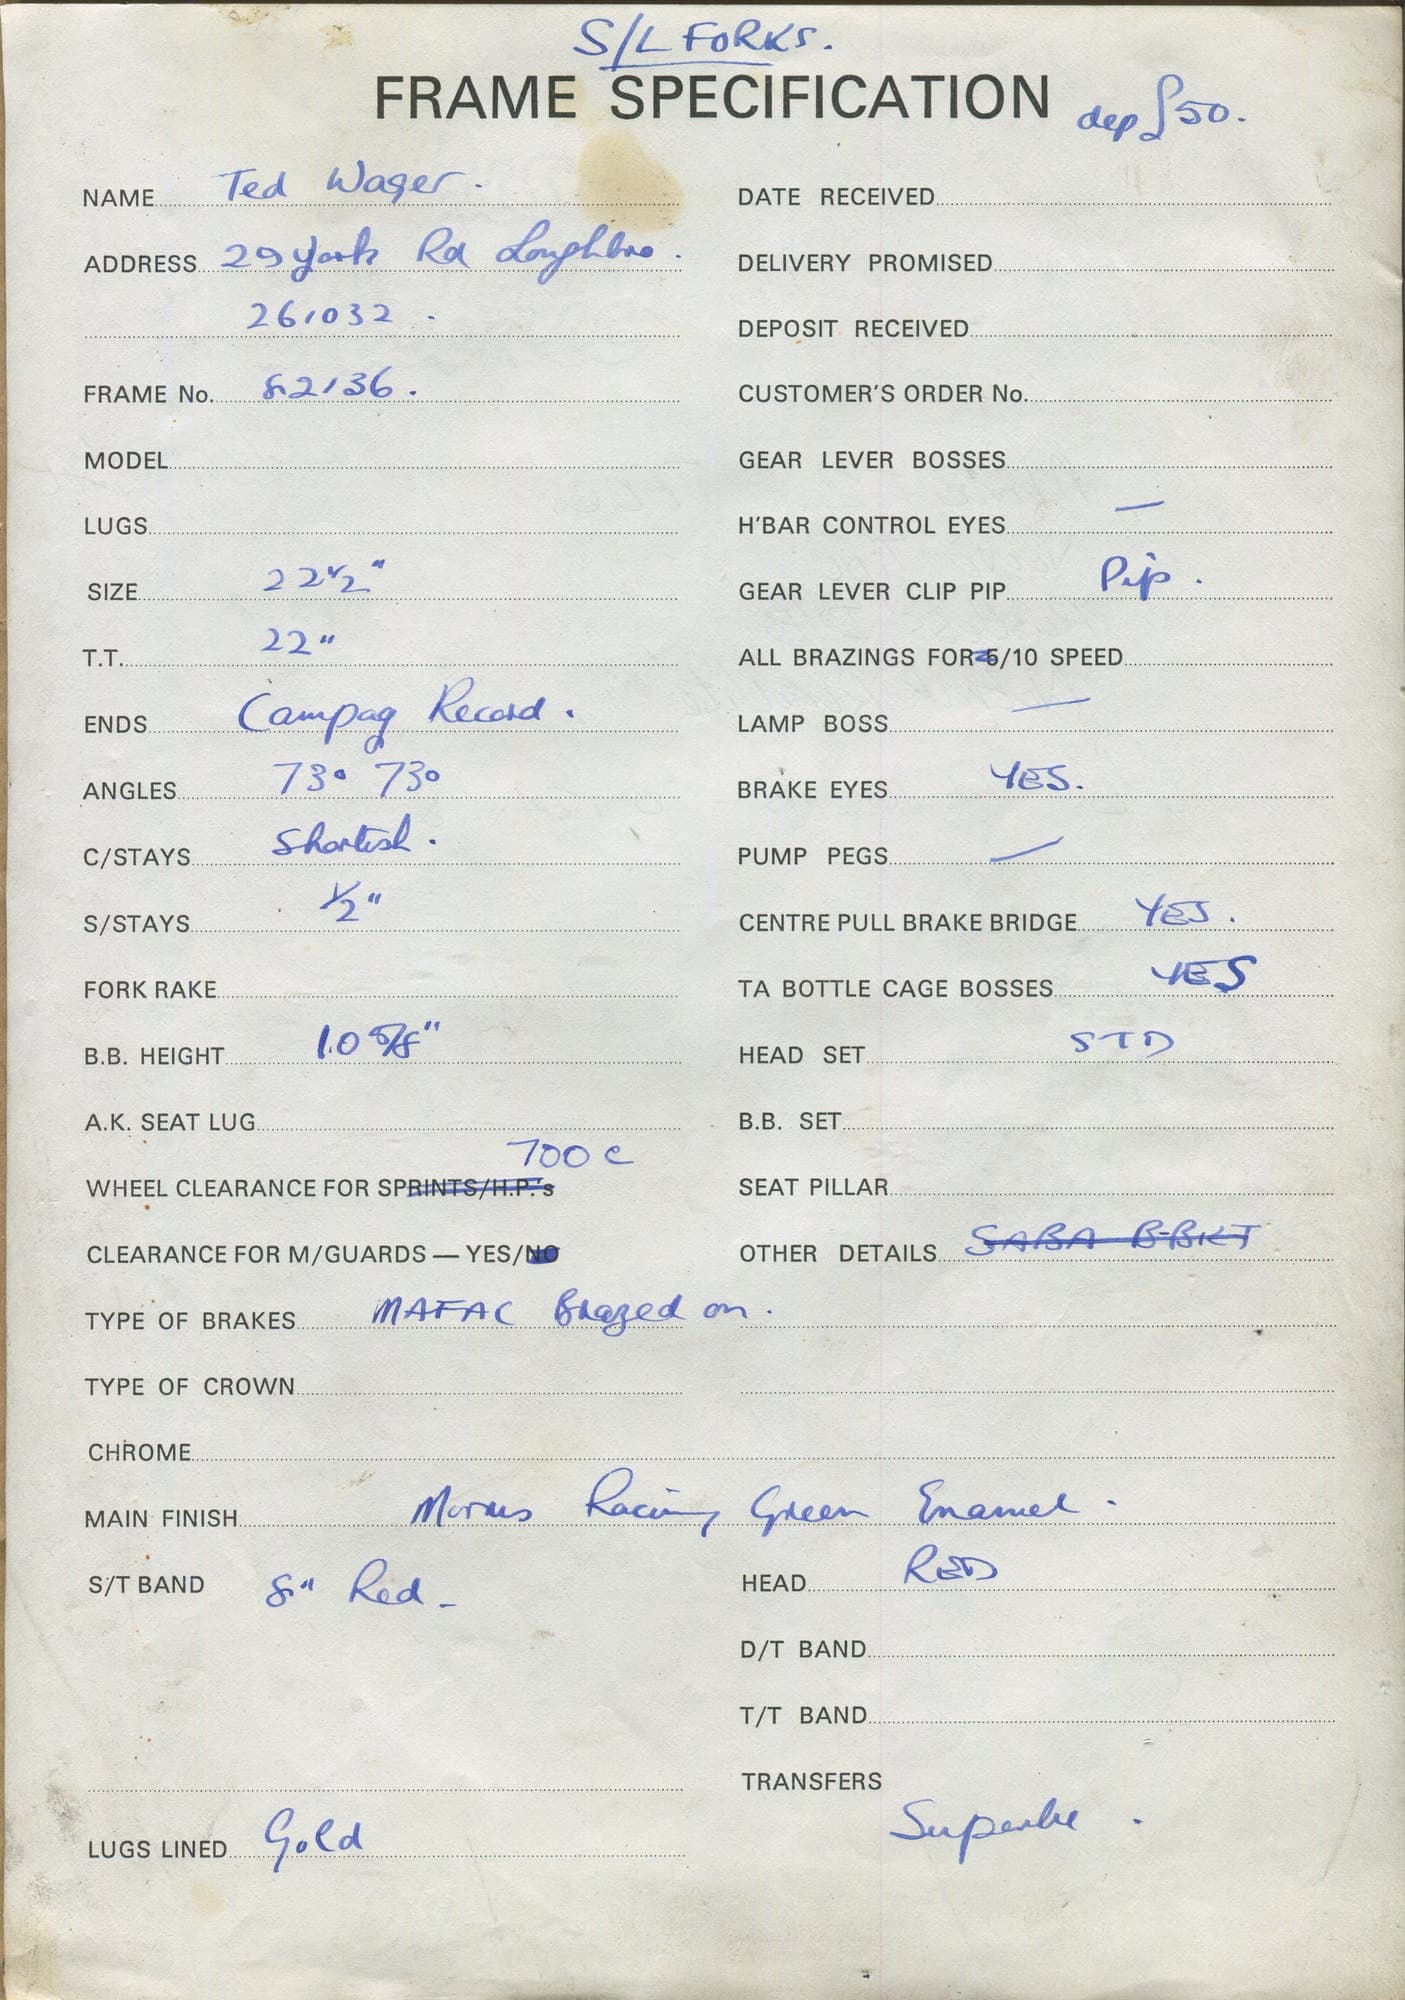 S/L FORKS.
FRAME SPECIFICATION
dep £50.
NAME Ted Wager.
ADDRESS 29 York Rd Loughbro.
261032.
FRAME No. 82136.
MODEL
LUGS
SIZE 22½"
T.T. 22"
ENDS Campag Record.
ANGLES 73° 73°
C/STAYS Shortish.
S/STAYS ½"
FORK RAKE
B.B. HEIGHT 10 5/8"
A.K. SEAT LUG
700c
WHEEL CLEARANCE FOR SPRINTS/H.P.'s
CLEARANCE FOR M/GUARDS — YES/NO
TYPE OF BRAKES MAFAC Brazed on.
TYPE OF CROWN
CHROME
MAIN FINISH Morris Racing Green Enamel.
S/T BAND 8" Red
LUGS LINED Gold
DATE RECEIVED
DELIVERY PROMISED
DEPOSIT RECEIVED
CUSTOMER'S ORDER No.
GEAR LEVER BOSSES
H'BAR CONTROL EYES —
GEAR LEVER CLIP PIP Pip.
ALL BRAZINGS FOR 5/10 SPEED
LAMP BOSS —
BRAKE EYES YES.
PUMP PEGS —
CENTRE PULL BRAKE BRIDGE YES.
TA BOTTLE CAGE BOSSES YES
HEAD SET STD
B.B. SET
SEAT PILLAR
OTHER DETAILS SABA B-BKT
HEAD RED
D/T BAND
T/T BAND
TRANSFERS
Superbe.